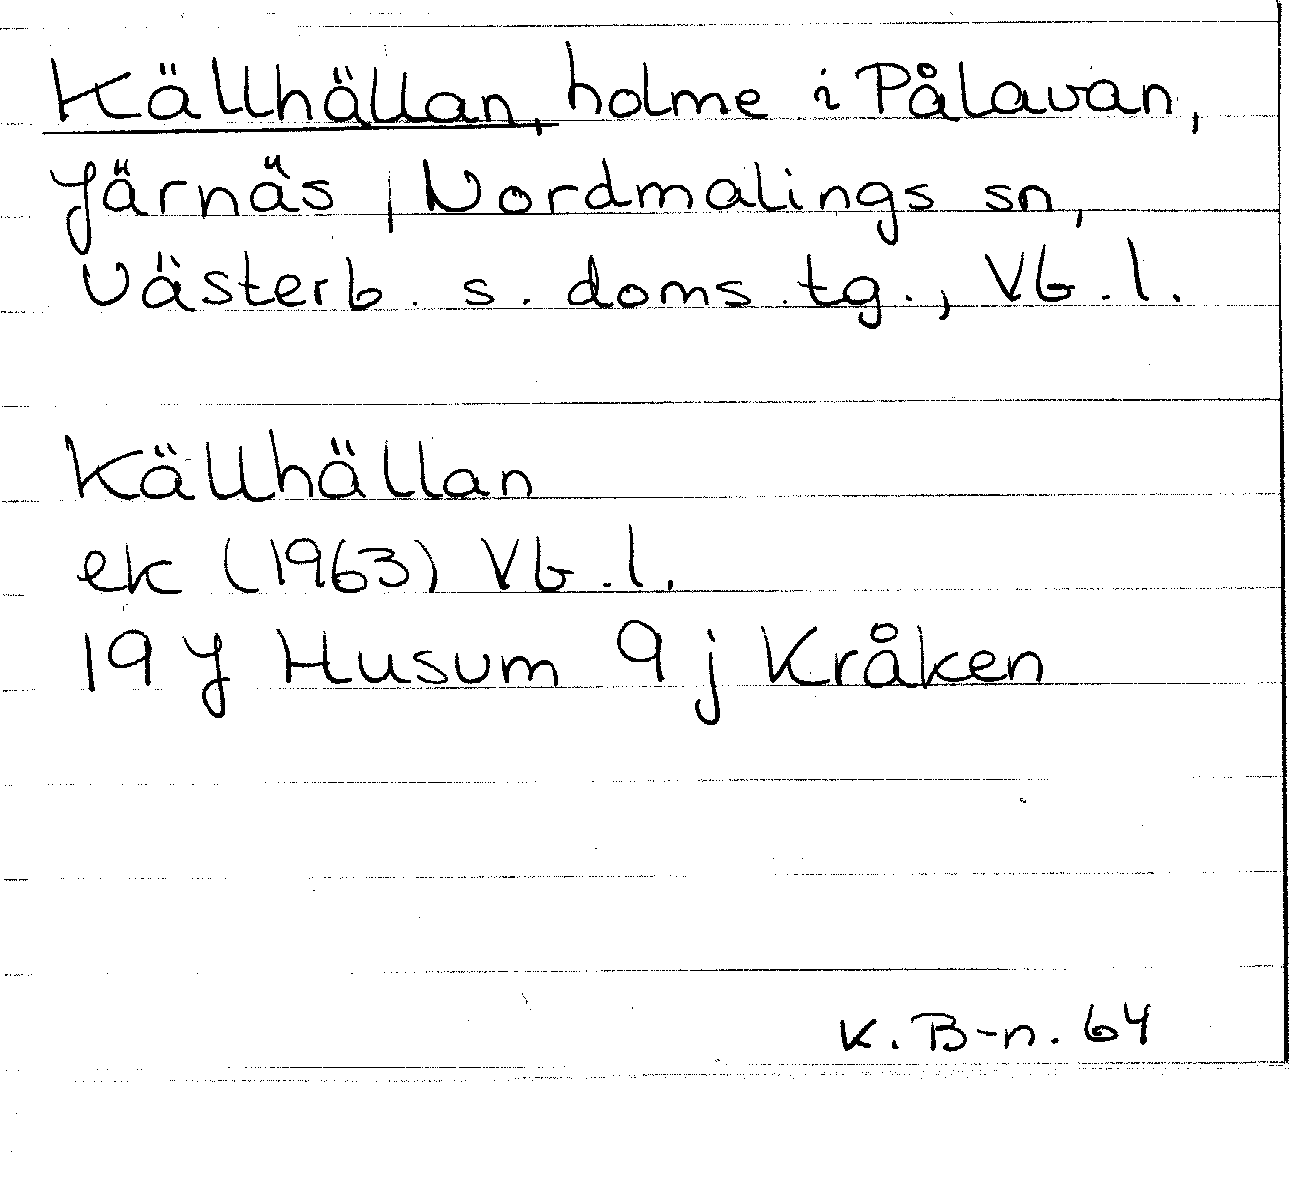 Källhällan, holme i Pålavan,
Järnäs, Nordmalings sn,
Västerb. s. doms.tg., Vb.l.
Källhällan
ek (1963) Vb.l.
19 J Husum 9 j Kråken
K. B-n. 64